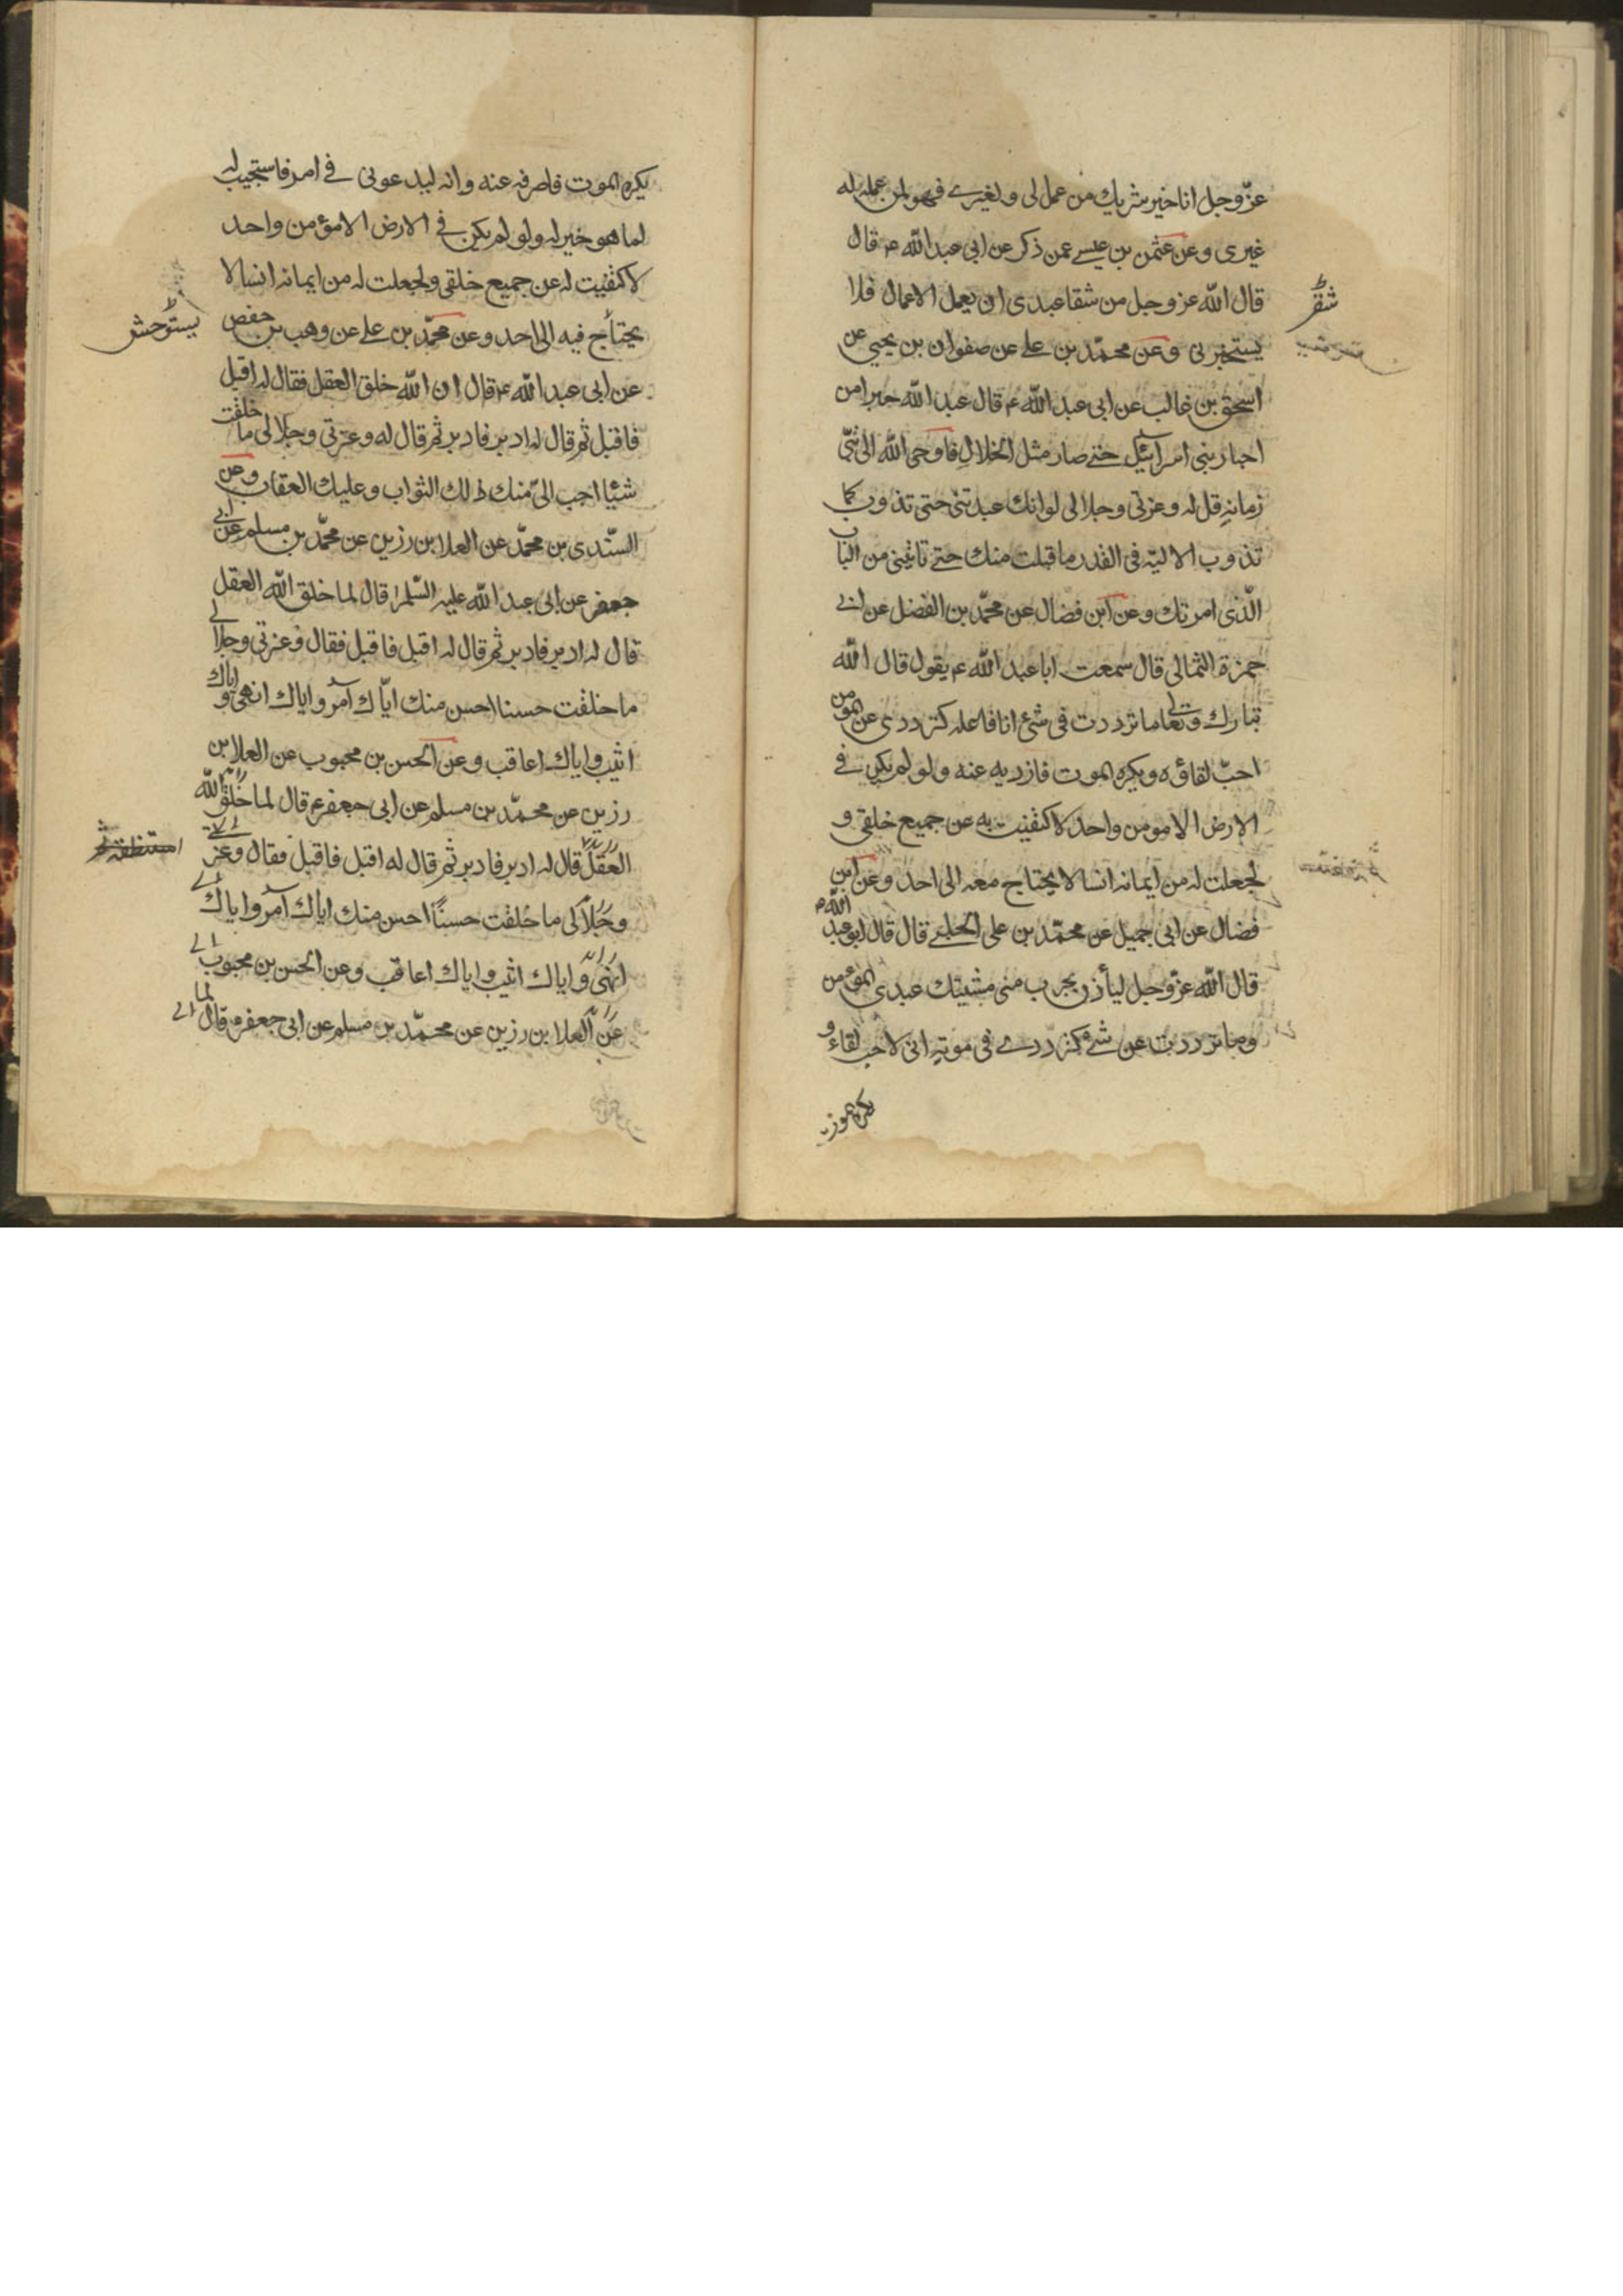 عزّوجل انا خير شريك من عمل لى ولغيرے فهو لمن عمله له
غيرى وعن عثمن بن عيسے عمن ذكر عن ابى عبد اللّه ع قال
قال اللّه عز وجل من شقا عبدى ان يعمل الاعمال فلا
يستخيرنى وعن محمّد بن على عن صفوان بن يحيى عن
اسحق بن غالب عن ابى عبد اللّه ع قال عبد اللّه حبر من
احبار بنى اسرآئيل حتے صار مثل الخلال فاوحى اللّه الى نبّى
زمانهِ قل له وعزتى وجلالى لو انك عبدتنى حتى تذوب كما
تذوب الاليّه فى القدر ما قبلت منك حتے تاتينى من الباب
الّذى امرتك وعن ابن فضال عن محمّد بن الفضل عن ابى
حمزة الثمالى قال سمعت ابا عبد اللّه ع يقول قال اللّه
تبارك وتعالى ما ترددت فى شئ انا فاعله كترددى عن المومن
احبّ لقاؤه ويكره الموت فازويه عنه ولو لم يكن فے
الارض الا مومن واحد لاكتفيت به عن جميع خلقى و
لجعلت له من ايمانه انسا لا يحتاج معه الى احد وعن ابن
فضال عن ابى جميل عن محمّد بن على الحلبے قال قال ابو عبد اللّه ع
قال اللّه عزّوجل ليأذن بحرب منى مشيتك عبدى المؤمن
وما ترددت عن شئ كترددے فى موته انى لاحب لقاءه و
يكره الموت
شقر
يكره الموت فاصرفه عنه وانه ليدعونى فے امر فاستجيب له
لما هو خير له ولو لم يكن فے الارض الا مؤمن واحد
لاكتفيت له عن جميع خلقى ولجعلت له من ايمانه انسا لا
يحتاج فيه الى احد وعن محمّد بن على عن وهب بن حفص
عن ابى عبد اللّه ع قال ان اللّه خلق العقل فقال له اقبل
فاقبل ثم قال له ادبر فادبر ثم قال له وعزتى وجلالى ما خلقت
شيئا احب الىّ منك لك الثواب وعليك العقاب وعن
السّندى بن محمّد عن العلا بن رزين عن محمّد بن مسلم عن ابى
جعفر عن ابى عبد اللّه عليه السّلم قال لما خلق اللّه العقل
قال له ادبر فادبر ثم قال له اقبل فاقبل فقال وعزتى وجلالى
ما خلقت حسنا احسن منك ايّاك آمر واياك انهى واياك
اثيب واياك اعاقب وعن الحسن بن محبوب عن العلا بن
رزين عن محمّد بن مسلم عن ابى جعفر ع قال لما خلق اللّه
العقل قال له ادبر فادبر ثم قال له اقبل فاقبل فقال وعزتى
وجلالى ما خلقت حسنًا احسن منك اياك آمر واياك
انهى واياك اثيب واياك اعاقب وعن الحسن بن محبوب
عن العلا بن رزين عن محمّد بن مسلم عن ابى جعفر ع قال لما
يستوحش